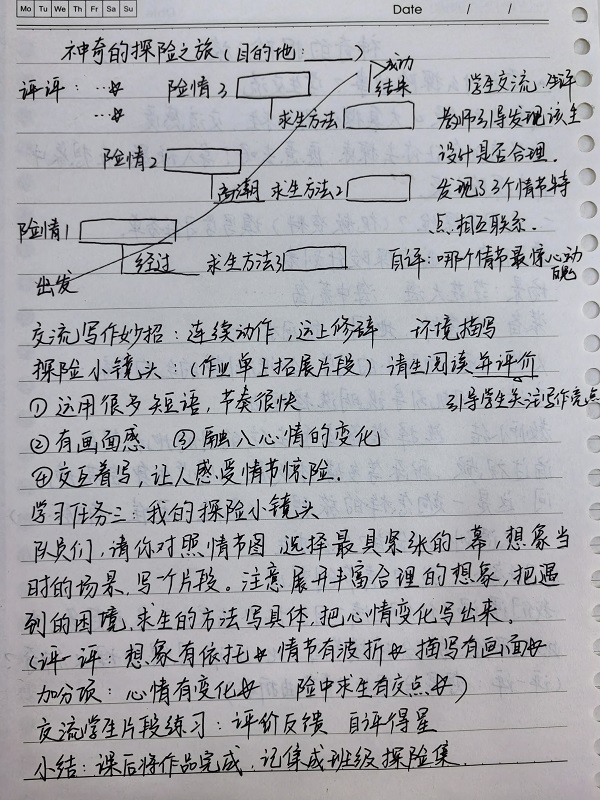 Mo Tu We Th Fr Sa Su
Date / /
神奇的探险之旅(目的地:____)
成功
评评: …☆ 险情3 结果 学生交流 生评
…☆ 求生方法 教师引导发现该生
险情2 设计是否合理.
高潮 求生方法2 发现了3个情节特
险情1 点相互联系.
出发 经过 求生方法3 自评:哪个情节最惊心动
魄
交流写作妙招:连续动作,运上修辞 环境描写
探险小镜头:(作业单上拓展片段)请生阅读并评价
①运用很多短语,节奏很快 引导学生关注写作亮点
②有画面感 ③融入心情的变化
④交互着写,让人感受情节惊险.
学习任务三:我的探险小镜头
队员们,请你对照情节图,选择最具紧张的一幕,想象当
时的场景,写一个片段。注意展开丰富合理的想象,把遇
到的困境,求生的方法写具体,把心情变化写出来。
(评一评:想象有依托☆ 情节有波折☆ 描写有画面☆
加分项:心情有变化☆ 险中求生有交点☆)
交流学生片段练习:评价反馈 自评得星
小结:课后将作品完成,记集成班级探险集.